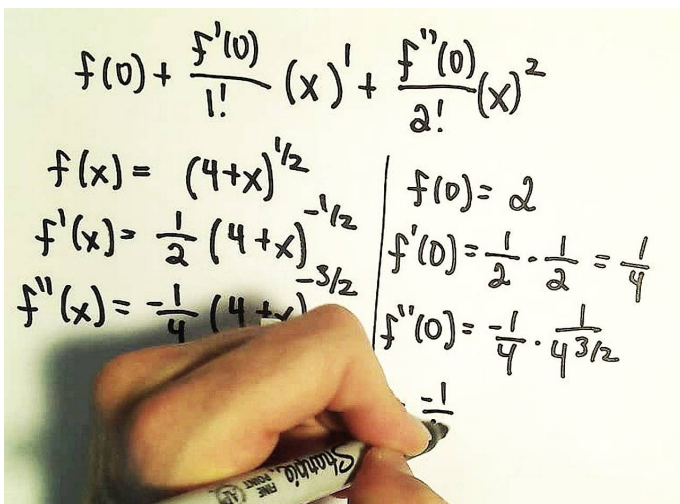 f(0) + f'(0)/1! (x)^1 + f''(0)/2! (x)^2
f(x) = (4+x)^1/2
f'(x) = 1/2 (4+x)^-1/2
f''(x) = -1/4 (4+x)^-3/2
f(0) = 2
f'(0) = 1/2 · 1/2 = 1/4
f''(0) = -1/4 · 1/4^3/2
-1
Sharpie
FINE
POINT